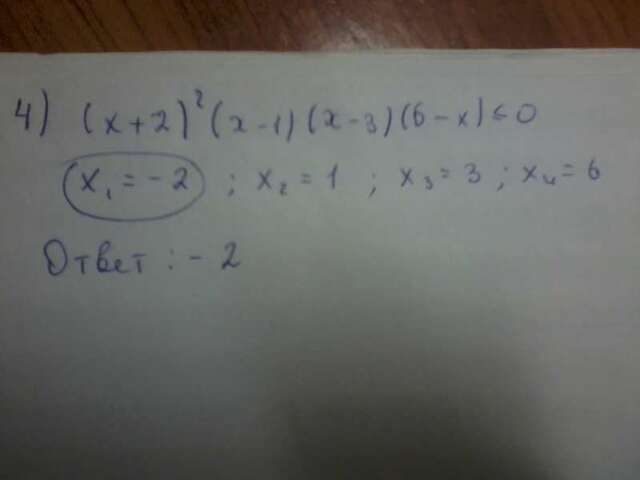 4) (x+2)²(x-1)(x-3)(6-x)≤0
x₁=-2; x₂=1; x₃=3; x₄=6
Ответ: -2